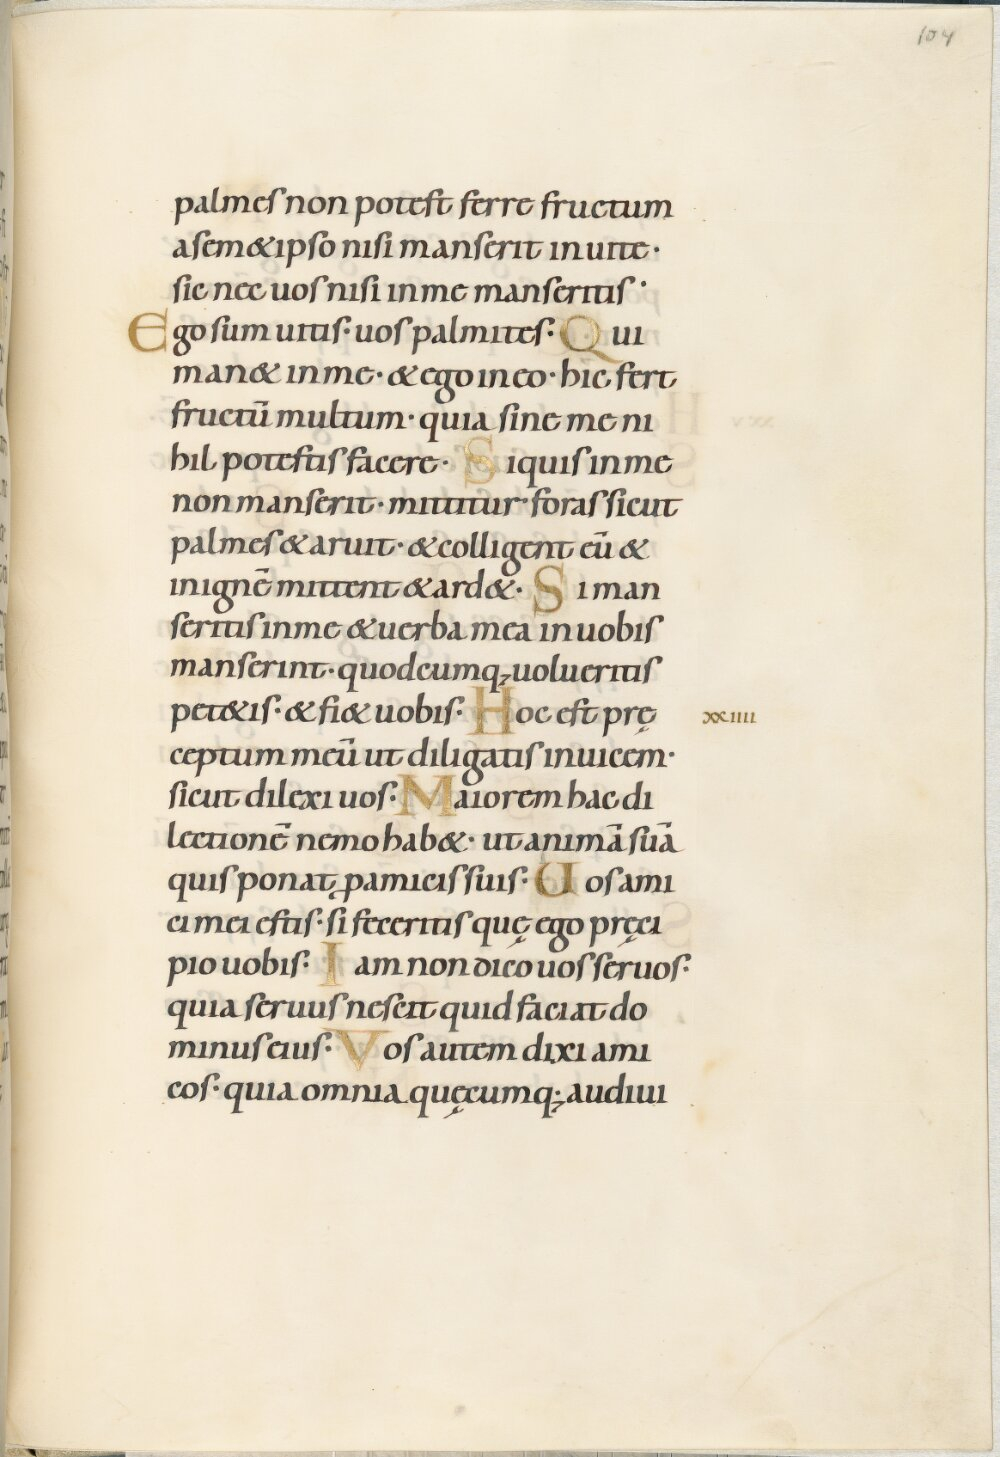 104
palmes non potest ferre fructum
a sem&ipso nisi manserit in uite·
sic nec uos nisi in me manseritis·
Ego sum uitis· uos palmites· Qui
man& in me· & ego in eo· hic fert
fructū multum· quia sine me ni
hil potestis facere· Siquis in me
non manserit· mittitur foras sicut
palmes & aruit· & colligent eū &
in ignē mittent & ard&· Si man
seritis in me & uerba mea in uobis
manserint· quodcumq; uolueritis
pet&is· & fi& uobis· Hoc est prę
xxiiii
ceptum meū ut diligatis inuicem·
sicut dilexi uos· Maiorem hac di
lectionē nemo hab&· ut animā suā
quis ponat ꝓ amicis suis· Uos ami
ci mei estis· si feceritis quę ego pręci
pio uobis· Iam non dico uos seruos·
quia seruus nescit quid faciat do
minus eius· Vos autem dixi ami
cos· quia omnia quęcumq; audiui